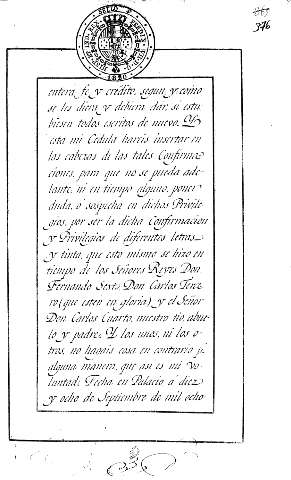 346
1820
entera fe y credito, segun y como
se les diera y debiera dar, si estu
biesen todos escritos de nuevo. Y
esta mi Cedula hareis insertar en
las cabezas de las tales Confirma
ciones, para que no se pueda ade
lante, ni en tiempo alguno, poner
duda, o sospecha en dichos Privile
gios, por ser la dicha Confirmacion
y Privilegios de diferentes letras
y tinta, que esto mismo se hizo en
tiempo de los Señores Reyes Don
Fernando Sexto Don Carlos Terce
ro (que esten en gloria) y el Señor
Don Carlos Cuarto, nuestro tio, abue
lo y padre. Y los unos, ni los o
tros, no hagais cosa en contrario p.
alguna manera, que asi es mi vo
luntad: Fecha en Palacio a diez
y ocho de Septiembre de mil ocho